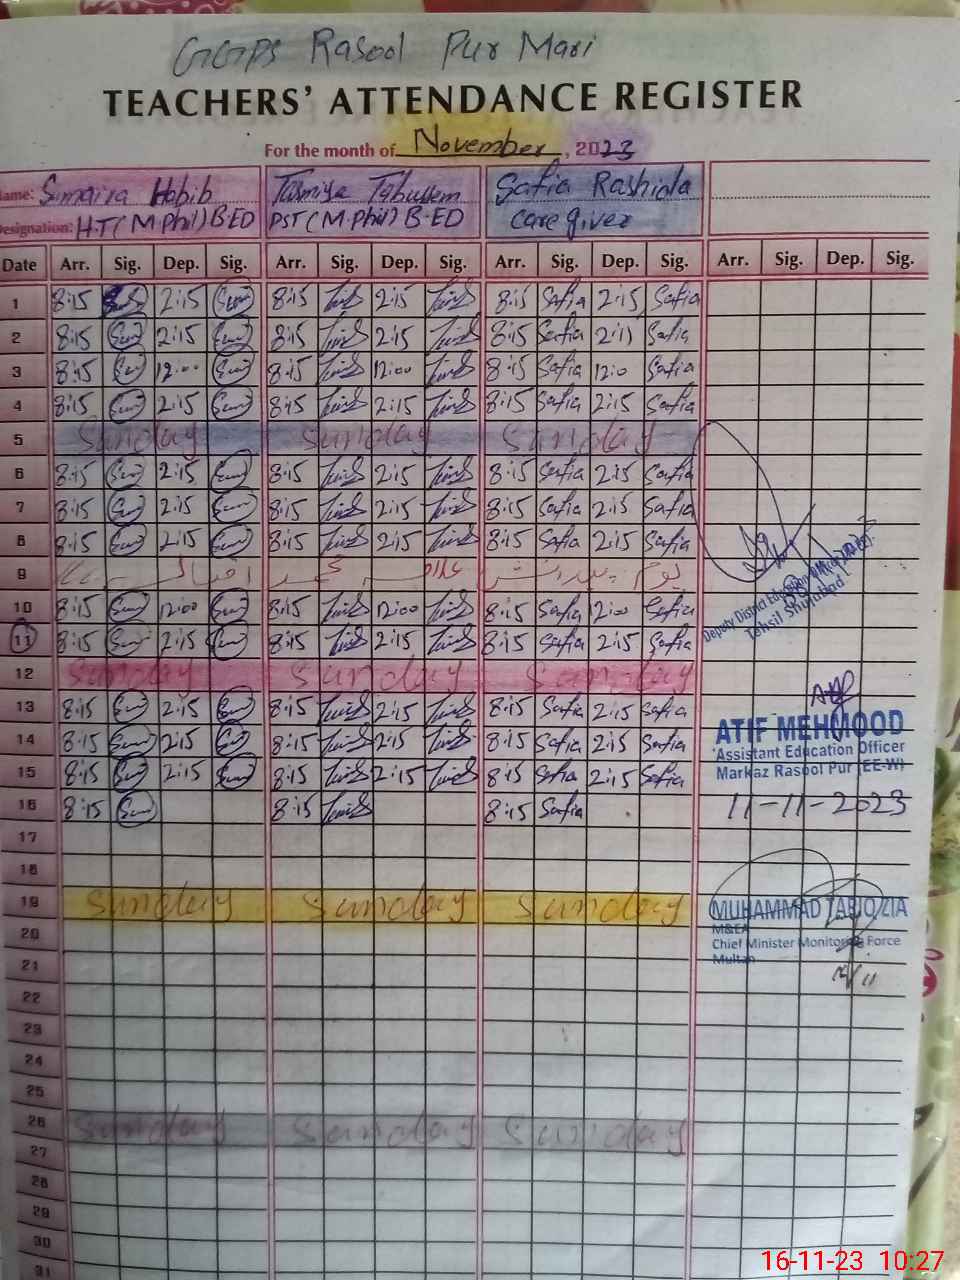 GGPS Rasool Pur Mari
TEACHERS' ATTENDANCE REGISTER
For the month of November, 2023
Name: Sumaira Habib Tasmiya Tabussem Safia Rashida
Designation: H.T (M Phil) B.ED PST (M Phil) B.ED care giver
Date Arr. Sig. Dep. Sig. Arr. Sig. Dep. Sig. Arr. Sig. Dep. Sig. Arr. Sig. Dep. Sig.
1 8:15 2:15 8:15 2:15 8:15 Safia 2:15 Safia
2 8:15 2:15 8:15 2:15 8:15 Safia 2:15 Safia
3 8:15 12:00 8:15 12:00 8:15 Safia 12:0 Safia
4 8:15 2:15 8:15 2:15 8:15 Safia 2:15 Safia
5 Sunday Sunday Sunday
6 8:15 2:15 8:15 2:15 8:15 Safia 2:15 Safia
7 8:15 2:15 8:15 2:15 8:15 Safia 2:15 Safia
8 8:15 2:15 8:15 2:15 8:15 Safia 2:15 Safia
9 یوم پیدائش علامہ محمد اقبال
10 8:15 12:00 8:15 12:00 8:15 Safia 12:00 Safia
11 8:15 2:15 8:15 2:15 8:15 Safia 2:15 Safia
Deputy District Education Officer
Tehsil Shujabad
12 Sunday Sunday Sunday
13 8:15 2:15 8:15 2:15 8:15 Safia 2:15 Safia
14 8:15 2:15 8:15 2:15 8:15 Safia 2:15 Safia
15 8:15 2:15 8:15 2:15 8:15 Safia 2:15 Safia
16 8:15 8:15 8:15 Safia
ATIF MEHMOOD
Assistant Education Officer
Markaz Rasool Pur (EE-W)
11-11-2023
17
18
19 Sunday Sunday Sunday
MUHAMMAD TARIQ ZIA
M&EA
Chief Minister Monitoring Force
Multan
20
21
22
23
24
25
26 Sunday Sunday Sunday
27
28
29
30
31
16-11-23 10:27